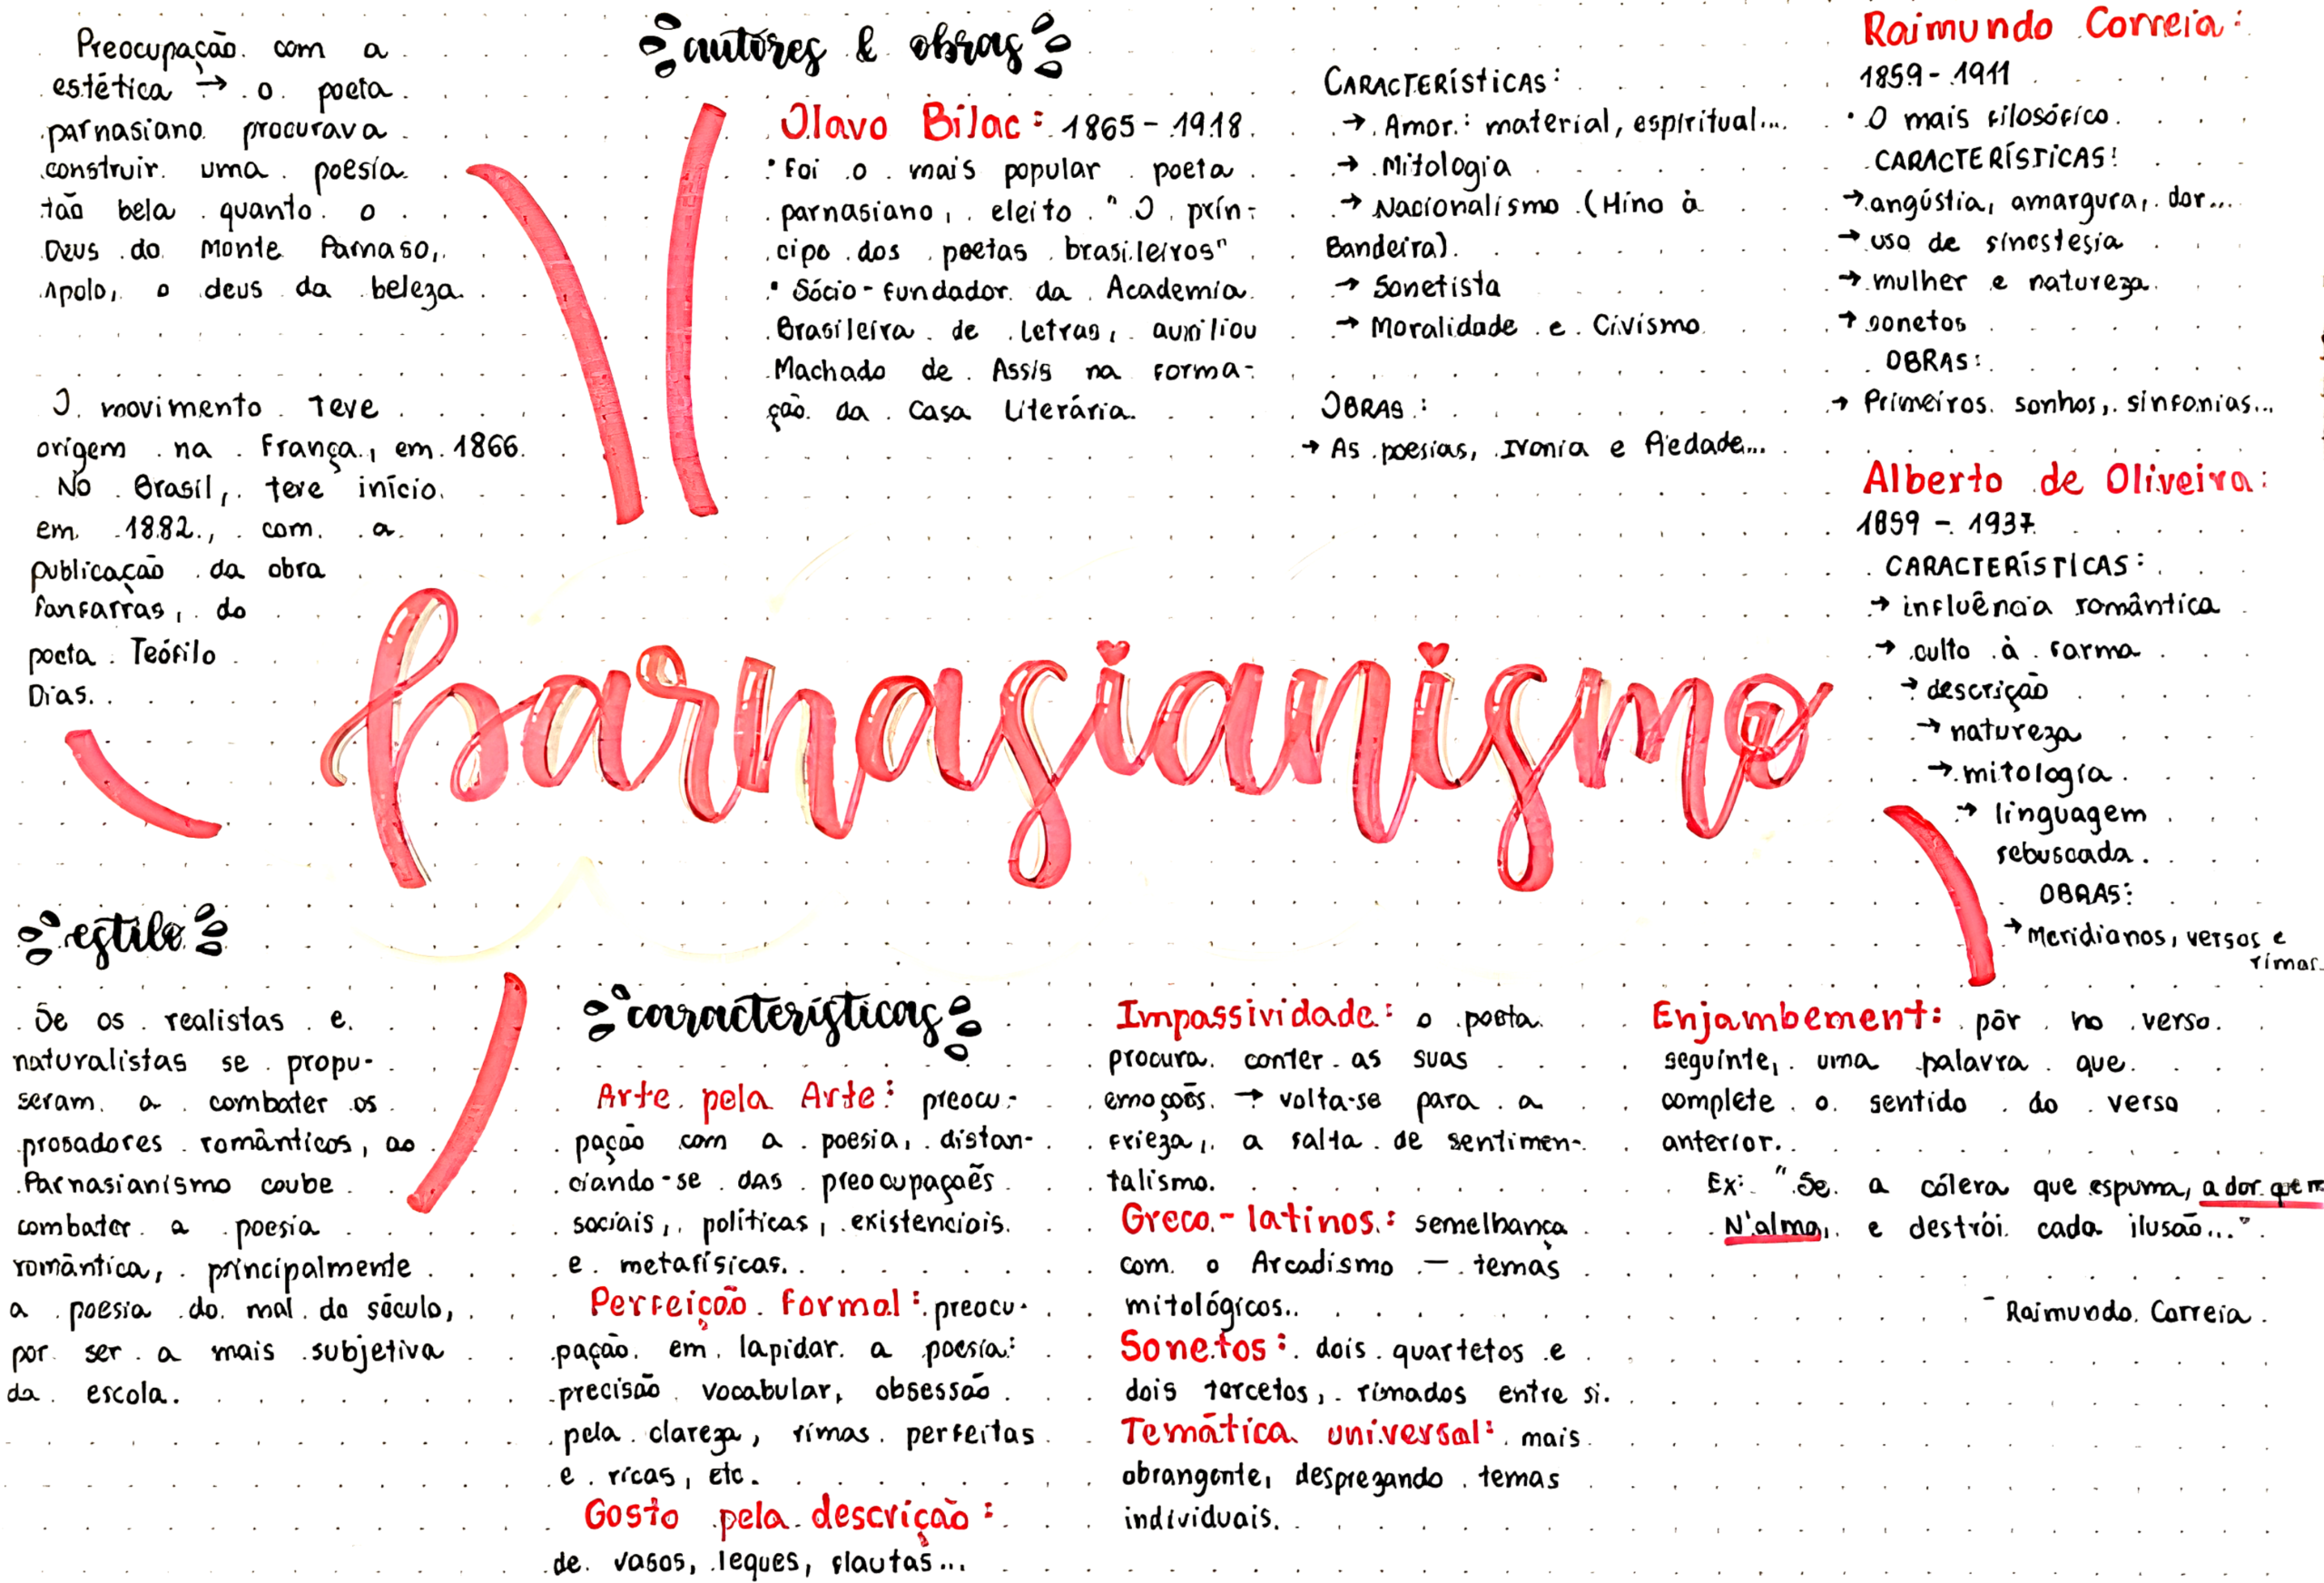 Preocupação com a
estética → o poeta
parnasiano procurava
construir uma poesia
tão bela quanto o
Deus do Monte Parnaso,
Apolo, o deus da beleza.
O movimento teve
origem na França, em 1866.
No Brasil, teve início
em 1882, com a
publicação da obra
Fanfarras, do
poeta Teófilo
Dias.
autores & obras
Olavo Bilac: 1865-1918.
• Foi o mais popular poeta
parnasiano, eleito "O prín-
cipe dos poetas brasileiros"
• Sócio-fundador da Academia
Brasileira de Letras, auxiliou
Machado de Assis na forma-
ção da Casa Literária.
CARACTERÍSTICAS:
→ Amor: material, espiritual...
→ Mitologia
→ Nacionalismo (Hino à
Bandeira).
→ Sonetista
→ Moralidade e Civismo
OBRAS:
→ As poesias, Ironia e Piedade...
Raimundo Correia:
1859-1911
• O mais filosófico.
CARACTERÍSTICAS:
→ angústia, amargura, dor...
→ uso de sinestesia
→ mulher e natureza
→ sonetos
OBRAS:
→ Primeiros sonhos, sinfonias...
Alberto de Oliveira:
1859 - 1937
CARACTERÍSTICAS:
→ influência romântica
→ culto à forma
→ descrição
→ natureza
→ mitologia
→ linguagem
rebuscada.
OBRAS:
→ Meridianos, versos e
rimas
parnasianismo
estilo
Se os realistas e
naturalistas se propu-
seram a combater os
prosadores românticos, ao
Parnasianismo coube
combater a poesia
romântica, principalmente
a poesia do mal do século,
por ser a mais subjetiva
da escola.
características
Arte pela Arte: preocu-
pação com a poesia, distan-
ciando-se das preocupações
sociais, políticas, existenciais
e metafísicas.
Perfeição formal: preocu-
pação em lapidar a poesia:
precisão vocabular, obsessão
pela clareza, rimas perfeitas
e ricas, etc.
Gosto pela descrição:
de vasos, leques, flautas...
Impassividade: o poeta
procura conter as suas
emoções → volta-se para a
frieza, a falta de sentimen-
talismo.
Greco-latinos: semelhança
com o Arcadismo - temas
mitológicos.
Sonetos: dois quartetos e
dois tercetos, rimados entre si.
Temática universal: mais
obrangente, desprezando temas
individuais.
Enjambement: pôr no verso
seguinte, uma palavra que
complete o sentido do verso
anterior.
Ex: "Se a cólera que espuma, a dor que m
N'alma, e destrói cada ilusão..."
- Raimundo Correia.